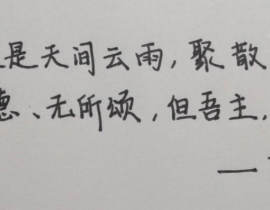 是天间云雨,聚散
德、无所颂,但吾主,
一